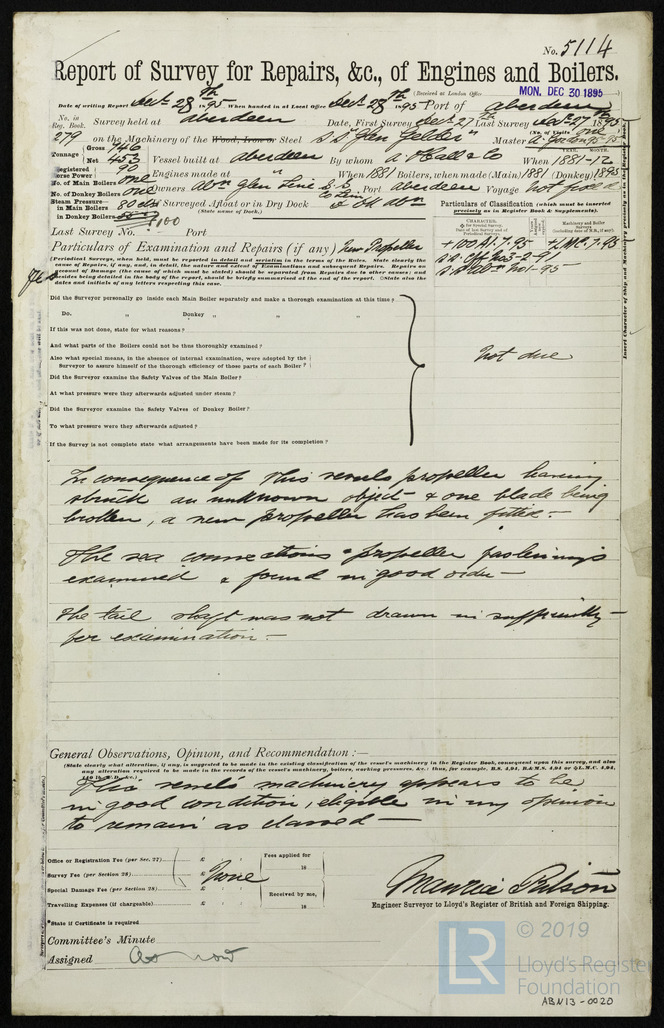 No. 5114
Report of Survey for Repairs, &c., of Engines and Boilers.
(Received at London Office MON. DEC 30 1895
Date of writing Report Dec 28th 1895 When handed in at Local Office Dec 28th 1895 Port of Aberdeen
No. in Reg. Book. Survey held at Aberdeen Date, First Survey Dec 27 Last Survey Dec 27th 1895
(No. of Visits one)
279 on the Machinery of the Wood, Iron or Steel S.S. "Glen Gelder" Master A. Gordon
Tonnage Gross 746
Net 453 Vessel built at Aberdeen By whom A. Hall & Co When 1881-12
Registered Horse Power 90 Engines made at " When 1881 Boilers, when made (Main) 1881 (Donkey) 1895
No. of Main Boilers One
No. of Donkey Boilers One Owners Abn Glen Line S.S. Port Aberdeen Voyage
Steam Pressure—
in Main Boilers 80 lbs If Surveyed Afloat or in Dry Dock
in Donkey Boilers (State name of Dock.)
Last Survey No. Port
Particulars of Classification (which must be inserted precisely as in Register Book & Supplements).
CHARACTER.
+100A1. 7.95 +LMC. 7.95
Particulars of Examination and Repairs (if any) New Propeller
(Periodical Surveys, when held, must be reported in detail and seriatim in the terms of the Rules. State clearly the cause of Repairs, if any, and, in detail, the nature and extent of Examinations and subsequent Repairs. Repairs on account of Damage (the cause of which must be stated) should be separated from Repairs due to other causes; and besides being detailed in the body of the report, should be briefly summarised at the end of the report. State also the dates and initials of any letters respecting this case.
Did the Surveyor personally go inside each Main Boiler separately and make a thorough examination at this time?
Do. " Donkey " " "
If this was not done, state for what reasons?
And what parts of the Boilers could not be thus thoroughly examined?
Also what special means, in the absence of internal examination, were adopted by the Surveyor to assure himself of the thorough efficiency of those parts of each Boiler?
Not due
Did the Surveyor examine the Safety Valves of the Main Boiler?
At what pressure were they afterwards adjusted under steam?
Did the Surveyor examine the Safety Valves of Donkey Boiler?
To what pressure were they afterwards adjusted?
If the Survey is not complete state what arrangements have been made for its completion?
In consequence of this vessels propeller having
struck an unknown object & one blade being
broken, a new propeller has been fitted.—
The sea connections & propeller fastenings
examined & found in good order—
The tail shaft was not drawn in sufficiently—
for examination.—
General Observations, Opinion, and Recommendation:—
(State clearly what alteration, if any, is suggested to be made in the existing classification of the vessel's machinery in the Register Book, consequent upon this survey, and also any alteration required to be made in the records of the vessel's machinery, boilers, working pressures, &c.: thus, for example, B.S. 4,94, B.&M.S. 4,94 or L.M.C. 4,94,
This vessels machinery appears to be
in good condition, eligible in my opinion
to remain as classed—
Office or Registration Fee (per Sec. 27) £ : : Fees applied for
Survey Fee (per Section 28) £ None 18
Special Damage Fee (per Section 28) £ : : Received by me,
Travelling Expenses (if chargeable) £ : : 18
Maurice Pulson
Engineer Surveyor to Lloyd's Register of British and Foreign Shipping.
*State if Certificate is required
Committee's Minute
Assigned As now
LR
© 2019
Lloyd's Register
Foundation
ABN13-0020